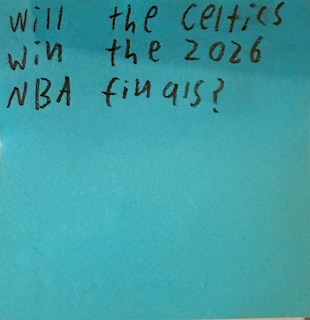 will the celtics
win the 2026
NBA finals?